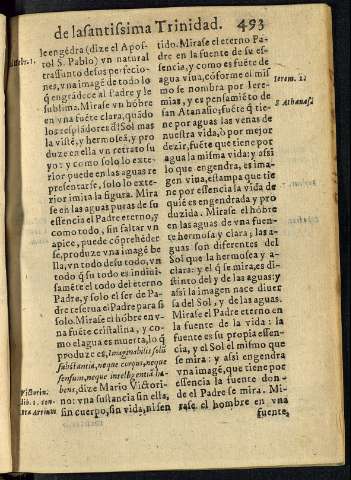 de la santissima Trinidad. 493
le engẽdra (dize el Apos-
tol S. Pablo) vn natural
trassunto de sus perfecio-
nes, vna imagẽ de todo lo
q̃ engrãdece al Padre y le
sublima. Mirase vn hõbre
en vna fuẽte clara, quãdo
los resplãdores del Sol mas
la vistẽ, y hermoseã, y pro
duze en ella vn retrato su
yo: y como solo lo exte-
rior puede en las aguas re
presentarse, solo lo exte-
rior imita la figura. Mira
se en las aguas puras de su
essencia el Padre eterno, y
como todo, sin faltar vn
apice, puede cõprehẽder
se, produze vna imagẽ be
lla, vn todo de su todo, vn
todo q̃ su todo es indiui-
samẽte el todo del eterno
Padre, y solo el ser de Pa-
dre reserua el Padre para si
solo. Mirase el hõbre en v-
na fuẽte cristalina, y co-
mo el agua es muerta, lo q̃
produze es, Imaginabilis solũ
substantia, neque corpus, neque
sensum, neque intellegentia ha-
bens, dize Mario Victori-
no: vna sustancia sin ella,
sin cuerpo, sin vida, ni sen
Victorin.
lib. 1. con-
tra Arrium.
tido. Mirase el eterno Pa-
dre en la fuente de su es-
sencia, y como es fuẽte de
agua viua, cõforme el mis
mo se nombra por Iere-
mias, y es pensamiẽto de
san Atanasio; fuẽte q̃ tie-
ne por aguas las venas de
nuestra vida, ò por mejor
dezir, fuẽte que tiene por
agua la misma vida: y assi
lo que engendra, es ima-
gen viua, estampa que tie
ne por essencia la vida de
quiẽ es engendrada y pro
duzida. Mirase el hõbre
en las aguas de vna fuen-
te hermosa y clara; las a-
guas son diferentes del
Sol que la hermosea y a-
clara: y el q̃ se mira, es di-
stinto del y de las aguas: y
assi la imagen nace diuer
sa del Sol, y de las aguas.
Mirase el Padre eterno en
la fuente de la vida: la
fuente es su propia essen-
cia, y el Sol el mismo que
se mira: y assi engendra
vna imagẽ, que tiene por
essencia la fuente don-
de el Padre se mira. Mi-
rase el hombre en vna
fuente,
Ierem. 2.
S. Athanas.